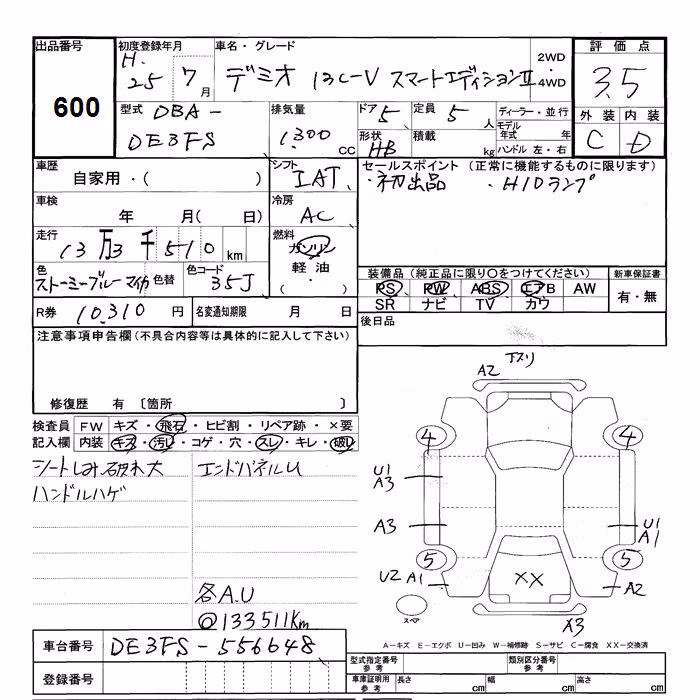 出品番号 600
初度登録年月 H. 25 7 月
車名・グレード デミオ 13C-V スマートエディションⅡ
2WD・4WD
評価点 3.5
外装 C 内装 D
型式 DBA- DE3FS
排気量 1300 CC
ドア 5 定員 5 人
形状 HB 積載 kg
ディーラー・並行
モデル年式 年
ハンドル 左・右
車歴 自家用・( )
シフト IAT
セールスポイント (正常に機能するものに限ります)
・初出品 ・HIDランプ
車検 年 月( 日)
冷房 AC
走行 13万3千510km
燃料 ガソリン 軽油 ( ・ )
色 ストーミーブルーマイカ 色替 色コード 35J
装備品 (純正品に限り○をつけてください) 新車保証書
PS PW ABS エアB AW 有・無
SR ナビ TV カワ
R券 10,310 円 名変通知期限 月 日
後日品
注意事項申告欄(不具合内容等は具体的に記入して下さい)
修復歴 有 〔箇所 〕
検査員記入欄
FW キズ・飛石・ヒビ割・リペア跡・×要
内装 キズ・汚レ・コゲ・穴・スレ・キレ・破レ
シートしみ破れ大 エンドパネルU
ハンドルハゲ
各A.U
@133511Km
下スリ
A2
4 4
U1
A3
A3 U1
A1
5 5
U2 A1 XX A2
スペア
A3
A-キズ E-エクボ U-凹み W-補修跡 S-サビ C-腐食 XX-交換済
車台番号 DE3FS-556648
登録番号
型式指定番号 参考 類別区分番号 参考
車庫証明用 参考 長さ cm 幅 cm 高さ cm